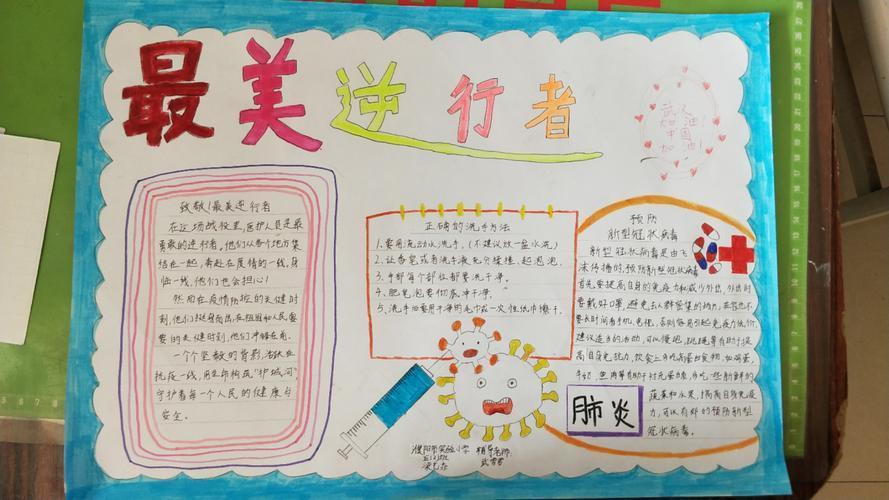 最美逆行者
武汉
加油!
中国
加油!
致敬!最美逆行者
在这场战役里,医护人员是最
勇敢的逆行者,他们从各个地方集
结在一起,奔赴在疫情的一线,身
临一线,他们也会担心!
然而在疫情防控的关健时
刻,他们挺身而出,在祖国和人民需
要的关健时刻,他们冲锋在前。
一个个坚毅的背影,
抗疫一线,用生命构筑"护城河",
守护着每一个人民的健康与
安全。
正确的洗手方法
1.要用流动水洗手,(不建议放一盆水洗)
2.让香皂或者洗手液充分揉搓,起泡泡.
3.手部每个部位都要洗干净,
4.肥皂泡要彻底冲干净,
5.洗手后要用干净的毛巾或一次性纸巾擦干.
预防
新型冠状病毒
新型冠状病毒是由飞
沫传播的,预防新型冠状病毒
首先要提高自身的免疫力和减少外出,外出时
要戴好口罩,避免去人群密集的场所,在家也不
要长时间看手机,电视,否则容易引起免疫力低下,
建议适当的活动,可以慢跑,跳绳等有助于提
高自身免疫力,饮食上多吃高蛋白食物,如鸡蛋,
牛奶,鱼肉等有助于补充蛋白质,多吃一些新鲜的
蔬菜和水果,提高自身免疫
力,可以有好的预防新型
冠状病毒。
肺炎
濮阳市实验小学 辅导老师: